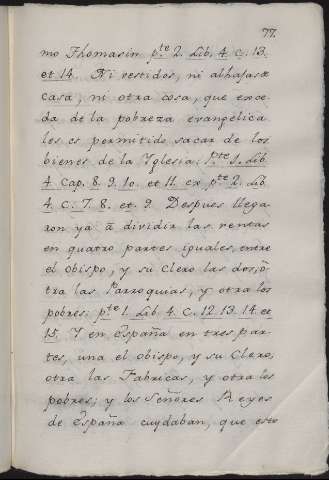 77.
mo Thomasin pte 2. Lib. 4. c. 13.
et 14. Ni vestidos, ni alhajas de
casa, ni otra cosa, que exce-
da de la pobreza evangelica
les es permitido sacar de los
bienes de la Yglesia: Pte 1. Lib
4. Cap. 8. 9. 10. et 11. ex pte 2. Lib
4. c. 7. 8. et. 9. Despues llega-
ron ya á dividir las rentas
en quatro partes iguales, entre
el obispo, y su Clero las dos, ó
tra las Parroquias, y otra los
pobres: pte 1. Lib 4. c. 12. 13. 14. et
15. Y en España en tres par-
tes, una el obispo, y su Clero,
otra las Fabricas, y otra los
pobres; y los Señores Reyes
de España cuydaban, que esto